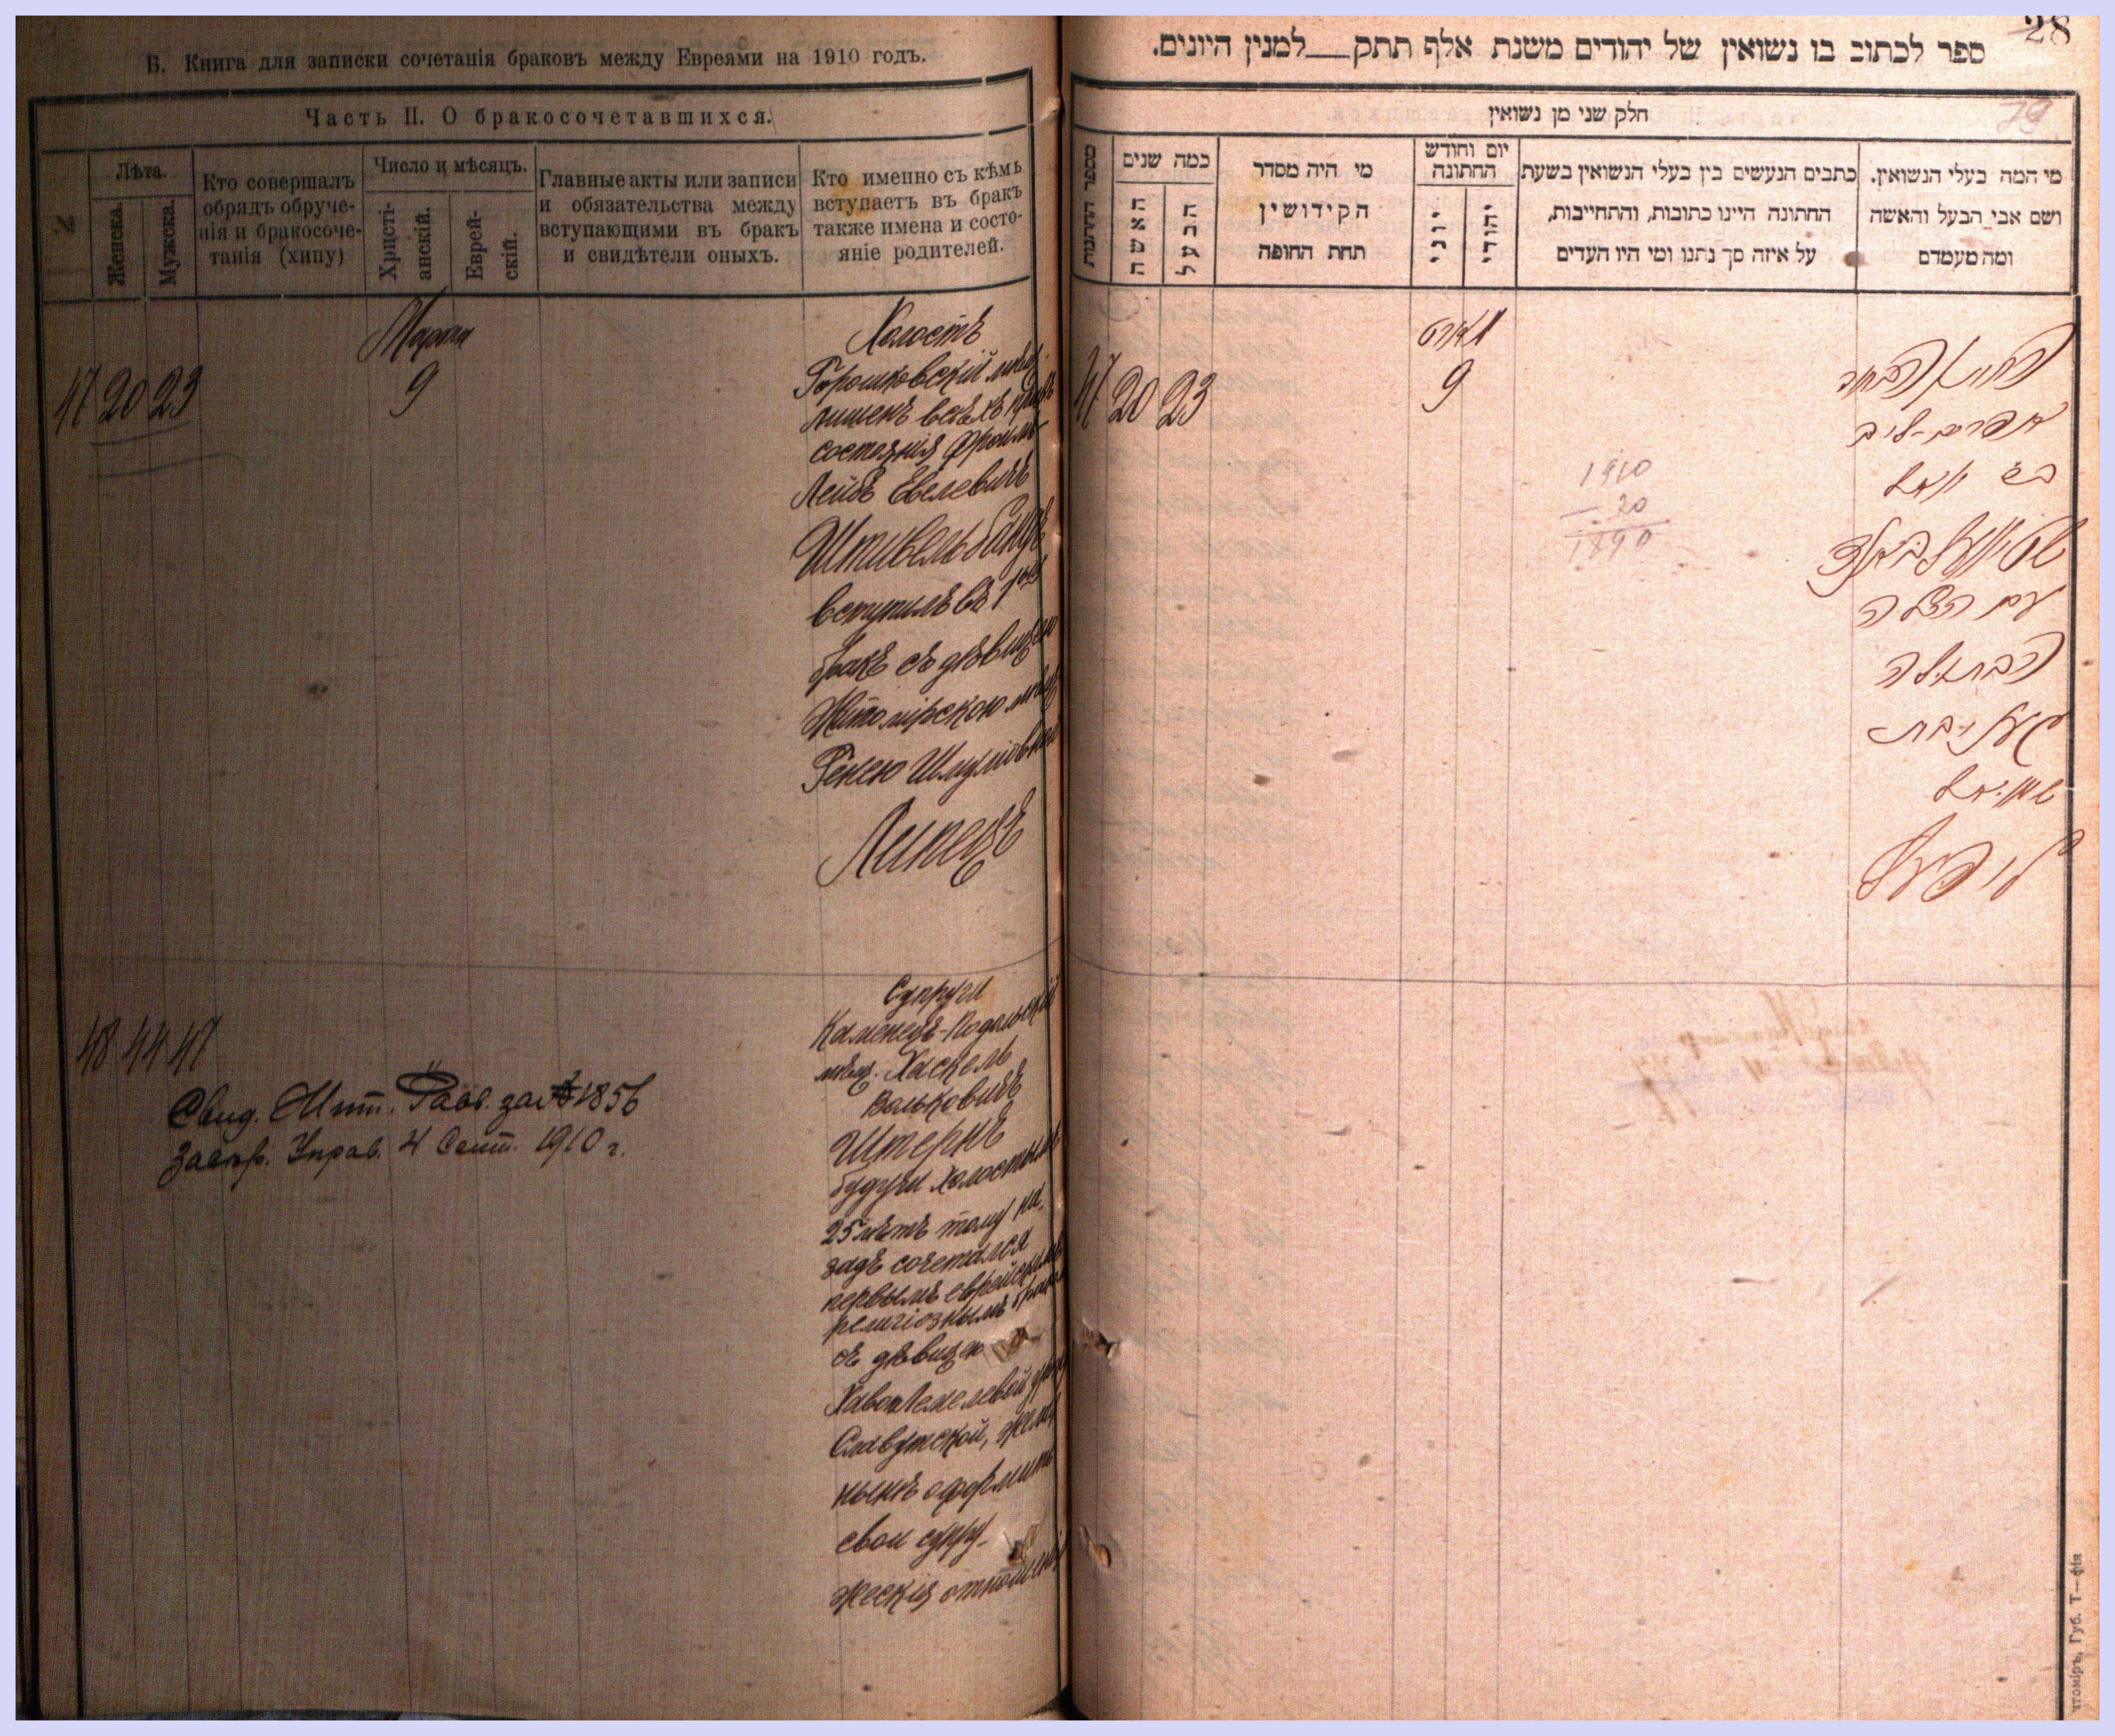 Б. Книга для записки сочетанія браковъ между Евреями на 1910 годъ.
Часть II. О бракосочетавшихся.
№
Лѣта.
Женска.
Мужска.
Кто совершалъ
обрядъ обруче-
нія и бракосоче-
танія (хипу)
Число и мѣсяцъ.
Христі-
анскій.
Еврей-
скій.
Главные акты или записи
и обязательства между
вступающими въ бракъ
и свидѣтели оныхъ.
Кто именно съ кѣмъ
вступаетъ въ бракъ
также имена и состо-
яніе родителей.
47 20 23
Марта
9
Холостъ
Горошковскій мѣщ.
лишенъ всѣхъ правъ
состоянія Фроим-
Лейбъ Евелевичъ
Штивельбандъ
вступилъ въ 1ый
бракъ съ дѣвицею
Житомірскою мѣщ.
Генею Шмулiовною
Липецъ
48 44 47
Свид. Жит. Равв. за № 1856
Завѣр. Управ. 4 Сент. 1910 г.
Супруги
Каменецъ-Подольскій
мѣщ. Хаскель
Вольковичъ
Штернъ
будучи холостымъ
25 лѣтъ тому на-
задъ сочетался
первымъ еврейскимъ
религіознымъ бракомъ
съ дѣвицею
Славутской,
нынѣ оформить
свои супру-
жескія отношенія
28
ספר לכתוב בו נשואין של יהודים משנת אלף תתק___למנין היונים.
29
חלק שני מן נשואין
מספר החתונות
כמה שנים
האשה
הבעל
מי היה מסדר
הקידושין
תחת החופה
יום וחודש
החתונה
יוני
יהודי
כתבים הנעשים בין בעלי הנשואין בשעת
החתונה היינו כתובות, והתחייבות,
על איזה סך נתנו ומי היו העדים
מי המה בעלי הנשואין.
ושם אבי הבעל והאשה
ומה מעמדם
47 20 23
מארט
9
1910
- 20
1890
החתן הבחור
אפרים-ליב
שטיוועלבאנד
עם הכלה
הבתולה
שמואל
ליפעץ
томіръ, Губ. Т—фія